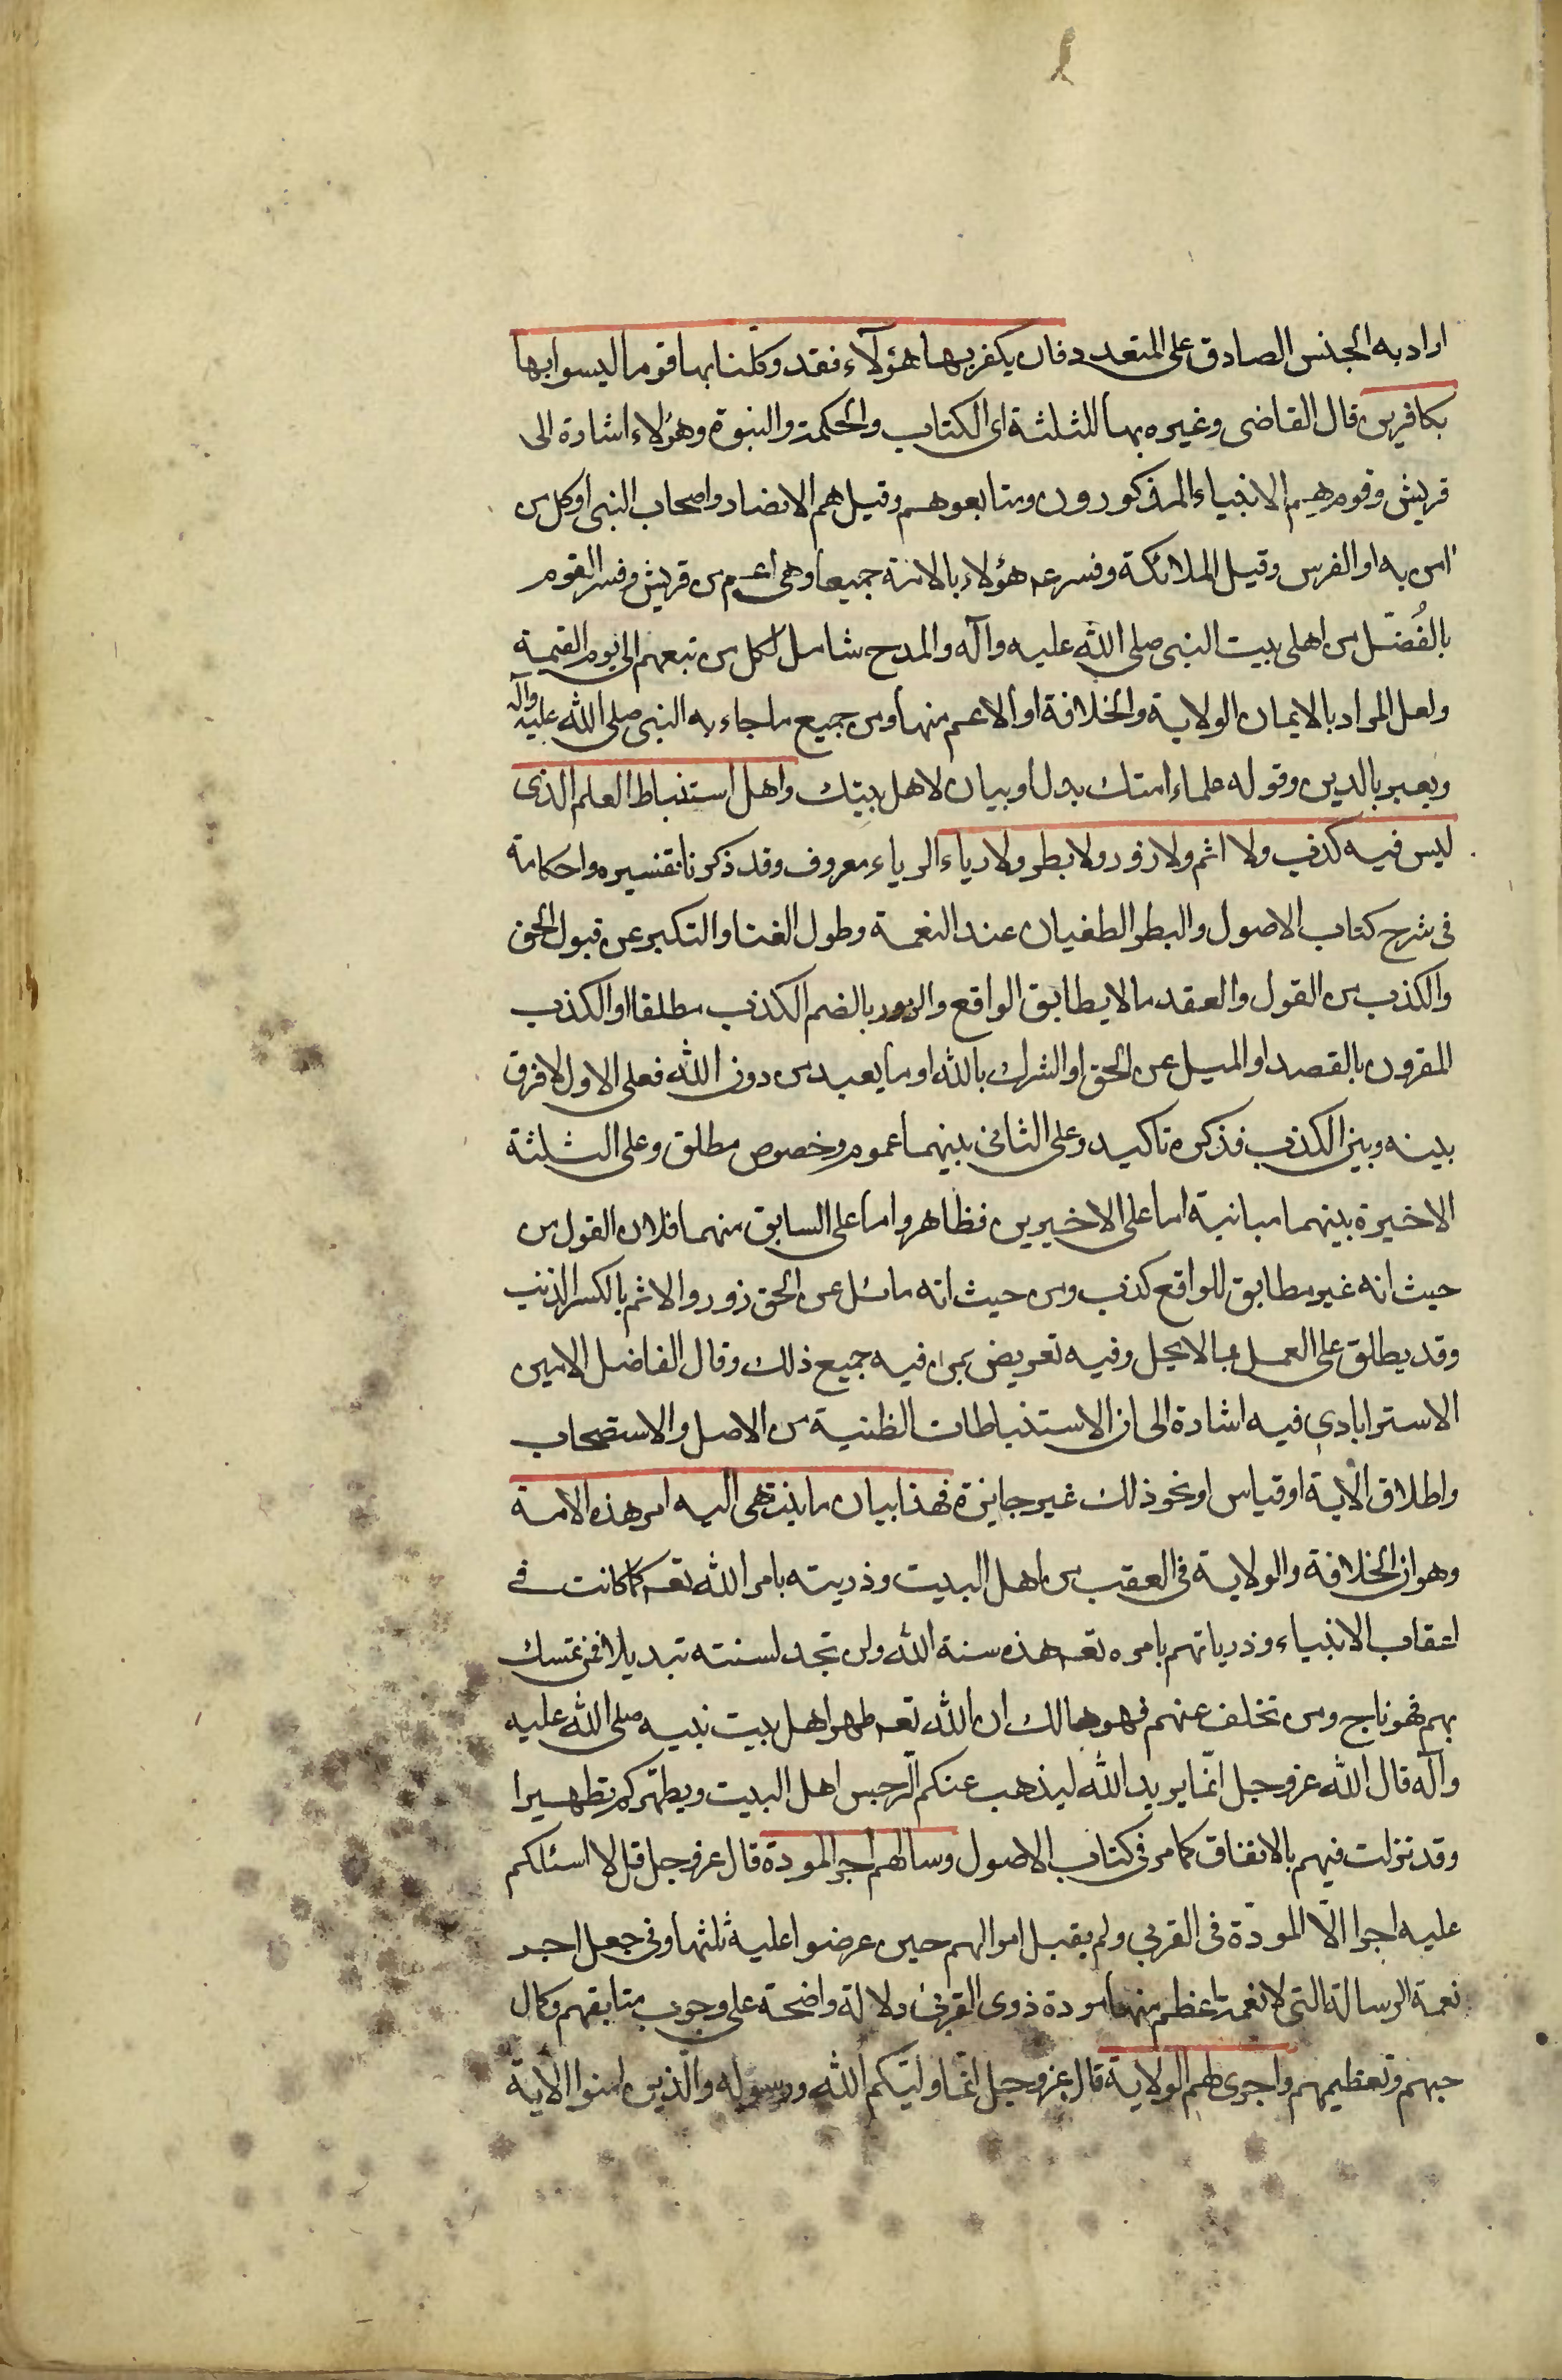 اراد به الجنس الصادق على المتعدد فان يكفر بها هؤلآء فقد وكلنا بها قوما ليسوا بها
بكافرين قال القاضى وغيره بها للثلثة اى الكتاب والحكمة والنبوة وهؤلاء اشارة الى
قريش وقومرهم الانبياء المذكورون ومتابعوهم وقيل هم الانصار واصحاب النبى او كل من
امن به او الفرس وقيل الملائكة وفسر عم هؤلاء بالامة جميعا وهى اعم من قريش وفسر القوم
بالفُضّل من اهلى بيت النبى صلى الله عليه وآله والمدح شامل لكل من تبعهم الى يوم القيمة
ولعل المراد بالايمان الولاية والخلافة او الاعم منها ومن جميع ما جاء به النبى صلى الله عليه وآله
ويعبر بالدين وقوله علماء امتك بدل او بيان لاهل بيتك واهل استنباط العلم الذى
ليس فيه كذب ولا اثم ولا زور ولا بطر ولا رياء الرياء معروف وقد ذكرنا تفسيره واحكامه
فى شرح كتاب الاصول والبطر الطغيان عند النعمة وطول الغنا والتكبر عن قبول الحق
والكذب من القول والعقد ما لا يطابق الواقع والزور بالضم الكذب مطلقا او الكذب
المقرون بالقصد او الميل عن الحق او الشرك بالله او ما يعبد من دون الله فعلى الاول لا فرق
بينه وبين الكذب فذكره تاكيد وعلى الثانى بينهما عموم وخصوص مطلق وعلى الثلثة
الاخيرة بينهما مباينة اما على الاخيرين فظاهر واما على السابق منهما فلان القول من
حيث انه غير مطابق للواقع كذب ومن حيث انه مائل عن الحق زور والاثم بالكسر الذنب
وقد يطلق على العمل بما لا يحل وفيه تعريض بمن فيه جميع ذلك وقال الفاضل الامين
الاسترابادي فيه اشارة الى ان الاستنباطات الظنية من الاصل والاستصحاب
واطلاق الآية او قياس او نحو ذلك غير جايزة فهذا بيان ما ينتهى اليه امر هذه الامة
وهو ان الخلافة والولاية فى العقب من اهل البيت وذريته بامر الله تعـ كما كانت فى
اعقاب الانبياء وذرياتهم بامره تعـ هذه سنة الله ولن تجد لسنته تبديلا فمن تمسك
بهم فهو ناج ومن تخلف عنهم فهو هالك ان الله تعـ طهر اهل بيت نبيه صلى الله عليه
وآله قال الله عز وجل انّما يريد الله ليذهب عنكم الرّجس اهل البيت ويطهّركم تطهيرا
وقد نزلت فيهم بالاتفاق كما مر فى كتاب الاصول وسالهم اجر المودة قال عز وجل قل لا اسئلكم
عليه اجرا الّا المودّة فى القربي ولم يقبل اموالهم حين عرضوا عليه ثلثها وفى جعل اجر
نعمة الرسالة التى لا نعمة اعظم منها مودة ذوى القربى دلالة واضحة على وجوب متابعتهم وكمال
حبهم وتعظيمهم واجرى لهم الولاية قال عز وجل انّما وليّكم الله ورسوله والّذين امنوا الآية